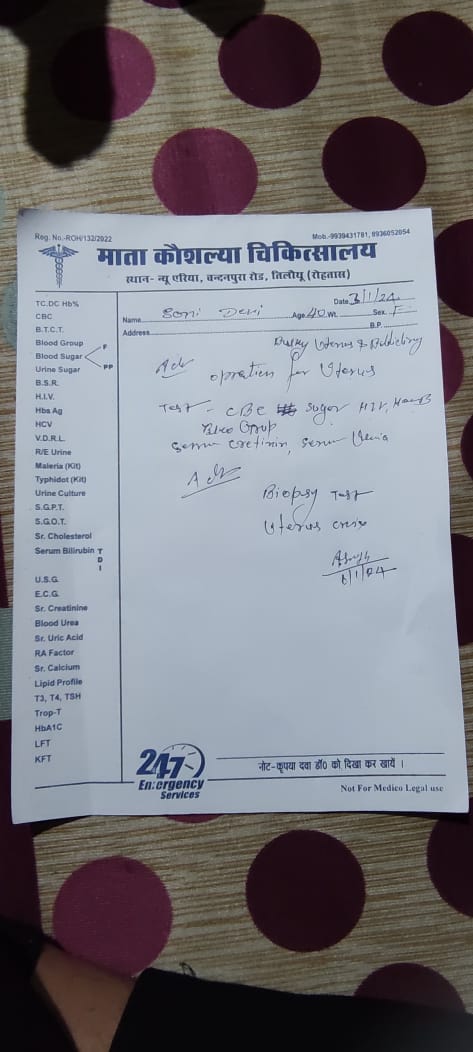 Reg. No.-ROH/132/2022
Mob.-9939431781, 8936052054
माता कौशल्या चिकित्सालय
स्थान- न्यू एरिया, चन्दनपुरा रोड, तिलौथू (रोहतास)
Name Soni Devi Age 40 Wt. Sex. F
Date 6/1/24
Address B.P.
TC.DC Hb%
CBC
B.T.C.T.
Blood Group
Blood Sugar F PP
Urine Sugar
B.S.R.
H.I.V.
Hbs Ag
HCV
V.D.R.L.
R/E Urine
Maleria (Kit)
Typhidot (Kit)
Urine Culture
S.G.P.T.
S.G.O.T.
Sr. Cholesterol
Serum Bilirubin T D I
U.S.G.
E.C.G.
Sr. Creatinine
Blood Urea
Sr. Uric Acid
RA Factor
Sr. Calcium
Lipid Profile
T3, T4, TSH
Trop-T
HbA1C
LFT
KFT
Bulky Uterus &
Adv opration for Uterus
Test - CBC Sugar HIV,
Group
Serum cretinin, Serum
Adv
Biopsy Test
Uterus
6/1/24
24x7
Emergency
Services
नोट-कृपया दवा डॉ० को दिखा कर खायें ।
Not For Medico Legal use